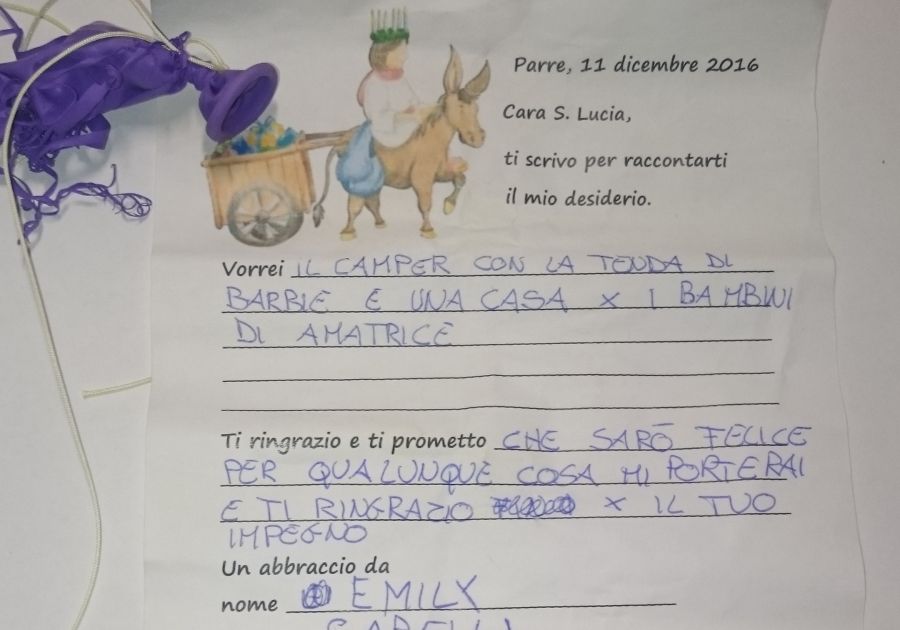 Parre, 11 dicembre 2016
Cara S. Lucia,
ti scrivo per raccontarti
il mio desiderio.
Vorrei IL CAMPER CON LA TENDA DI
BARBIE E UNA CASA X I BAMBINI
DI AMATRICE
Ti ringrazio e ti prometto CHE SARÒ FELICE
PER QUALUNQUE COSA MI PORTERAI
E TI RINGRAZIO X IL TUO
IMPEGNO
Un abbraccio da
nome EMILY